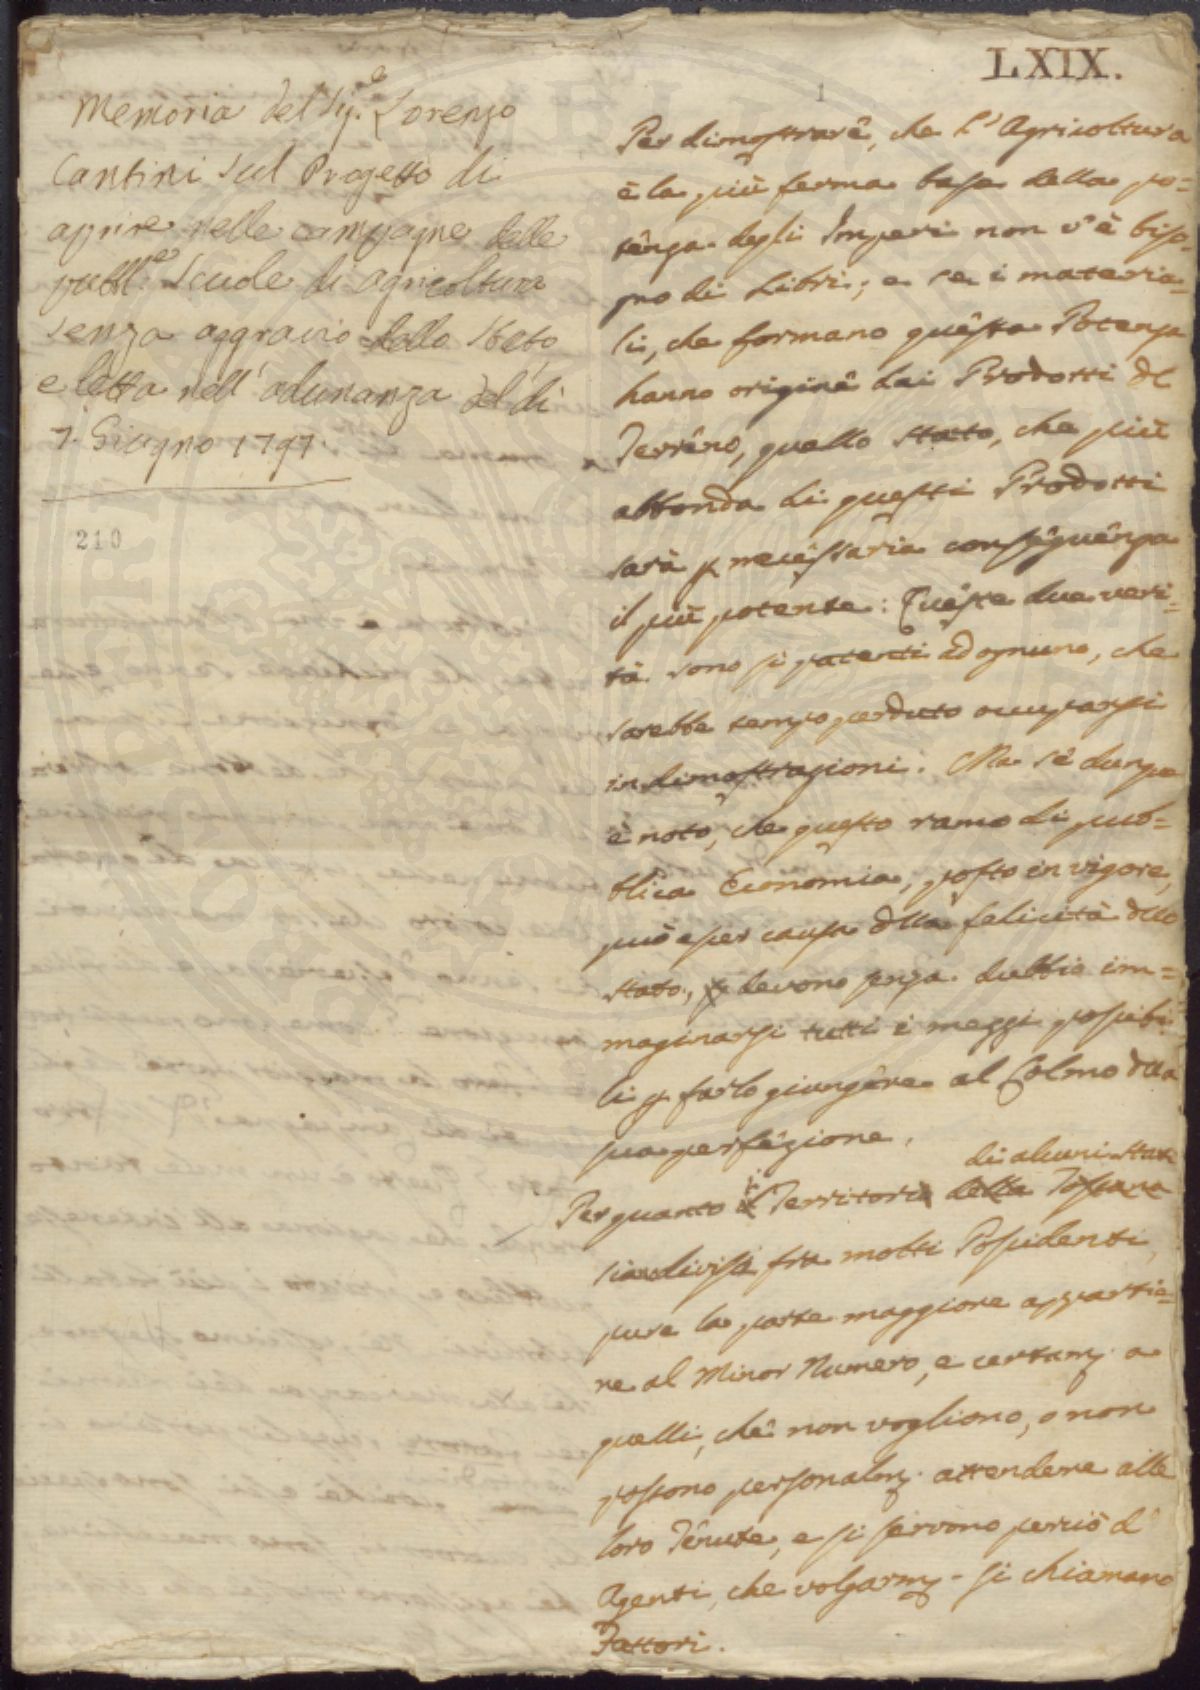 LXIX.
1
Memoria del Sig.e Lorenzo
Cantini sul Progetto di
aprire nelle campagne delle
pubbl.e Scuole di agricoltura
senza aggravio dello Stato,
e letta nell' adunanza del dì
7. Giugno 1797.
210
Per dimostrare, che l'Agricoltura
è la più ferma base della po=
tenza degli Imperi non v'è biso=
gno di Libri; e se i materia=
li, che formano questa Potenza
hanno origine dai Prodotti del
Terreno, quello stato, che più
abbonda di questi Prodotti
sarà p necessaria conseguenza
il più potente: Queste due veri=
tà sono sì patenti ad ognuno, che
sarebbe tempo perduto occuparsi
in dimostrazioni. Ma se dunque
è noto, che questo ramo di pub=
blica Economia, posto in vigore,
può esser causa della felicità dello
stato, si devono senza dubbio im=
maginarsi tutti i mezzi possibi=
li p farlo giungere al Colmo della
sua perfezione.
di alcuni stati
Per quanto i Territori della Toscana
sian divisi fra molti Possidenti,
pure la parte maggiore appartie=
ne al Minor Numero, e certam. a
quelli, che non vogliono, o non
possono personalm. attendere alle
loro Tenute, e si servono perciò d'
Agenti, che volgarm. si chiamano
Fattori.